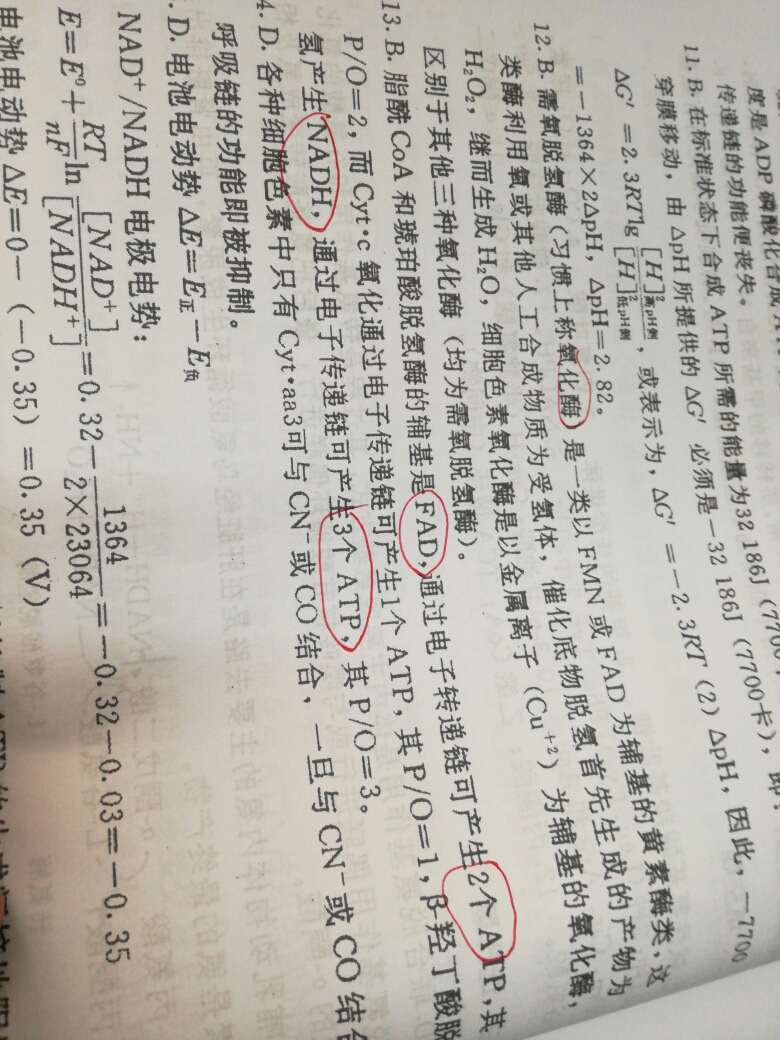 度是 ADP 磷酸化合成
传递链的功能便丧失。
11. B. 在标准状态下合成 ATP 所需的能量为32 186J (7700卡), 即:
穿膜移动, 由 ΔpH 所提供的 ΔG′ 必须是－32 186J (7700卡), 因此, －7700
ΔG′＝2.3RTlg [H]²高pH侧/[H]²低pH侧, 或表示为, ΔG′＝－2.3RT (2) ΔpH,
＝－1364×2ΔpH, ΔpH＝2.82。
12. B. 需氧脱氢酶 (习惯上称氧化酶) 是一类以 FMN 或 FAD 为辅基的黄素酶类, 这
类酶利用氧或其他人工合成物质为受氢体, 催化底物脱氢首先生成的产物为
H₂O₂, 继而生成 H₂O, 细胞色素氧化酶是以金属离子 (Cu⁺²) 为辅基的氧化酶,
区别于其他三种氧化酶 (均为需氧脱氢酶)。
13. B. 脂酰 CoA 和琥珀酸脱氢酶的辅基是 FAD, 通过电子转递链可产生2个 ATP, 其
P/O＝2, 而 Cyt·c 氧化通过电子传递链可产生1个 ATP, 其 P/O＝1, β-羟丁酸脱
氢产生 NADH, 通过电子传递链可产生3个 ATP, 其 P/O＝3。
4. D. 各种细胞色素中只有 Cyt·aa3可与 CN⁻或 CO 结合, 一旦与 CN⁻或 CO 结合
呼吸链的功能即被抑制。
. D. 电池电动势 ΔE＝E正－E负
NAD⁺/NADH 电极电势:
E＝E⁰＋RT/nF ln [NAD⁺]/[NADH⁺]＝0.32－1364/2×23064＝－0.32－0.03＝－0.35
电池电动势 ΔE＝0－ (－0.35) ＝0.35 (V)